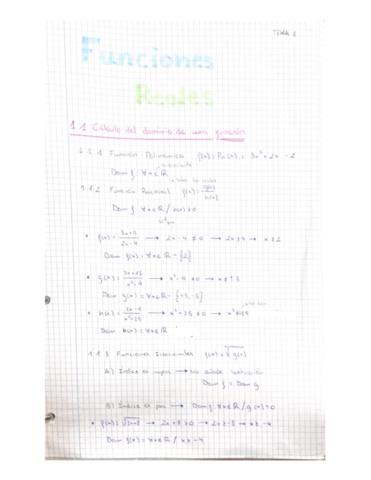 Tema 1
Funciones
Reales
1.1 Cálculo del dominio de una función
1.1.1 Función Polinómica f(x) = Pn(x) = 3x² + 2x - 2
Dom f ∀x ∈ ℝ
1.1.2 Función Racional f(x) =
Dom f ∀x ∈ ℝ / h(x) ≠ 0
• f(x) = → 2x - 4 ≠ 0 → 2x ≠ 4 → x ≠ 2
Dom f(x) = ∀x ∈ ℝ - {2}
• g(x) = → x² - 9 ≠ 0 → x ≠ ± 3
Dom g(x) = ∀x ∈ ℝ - {+3, -3}
• h(x) = → x² + 25 ≠ 0 →
Dom h(x) = ∀x ∈ ℝ
1.1.3 Funciones Irracionales f(x) = √g(x)
A) Índice es impar → No añade restricción
Dom f = Dom g
B) Índice es par → Dom f ∀x ∈ ℝ / g(x) ≥ 0
• f(x) = √2x+8 → 2x + 8 ≥ 0 → 2x ≥ -8 → x ≥ -4
Dom f(x) = ∀x ∈ ℝ / x ≥ -4